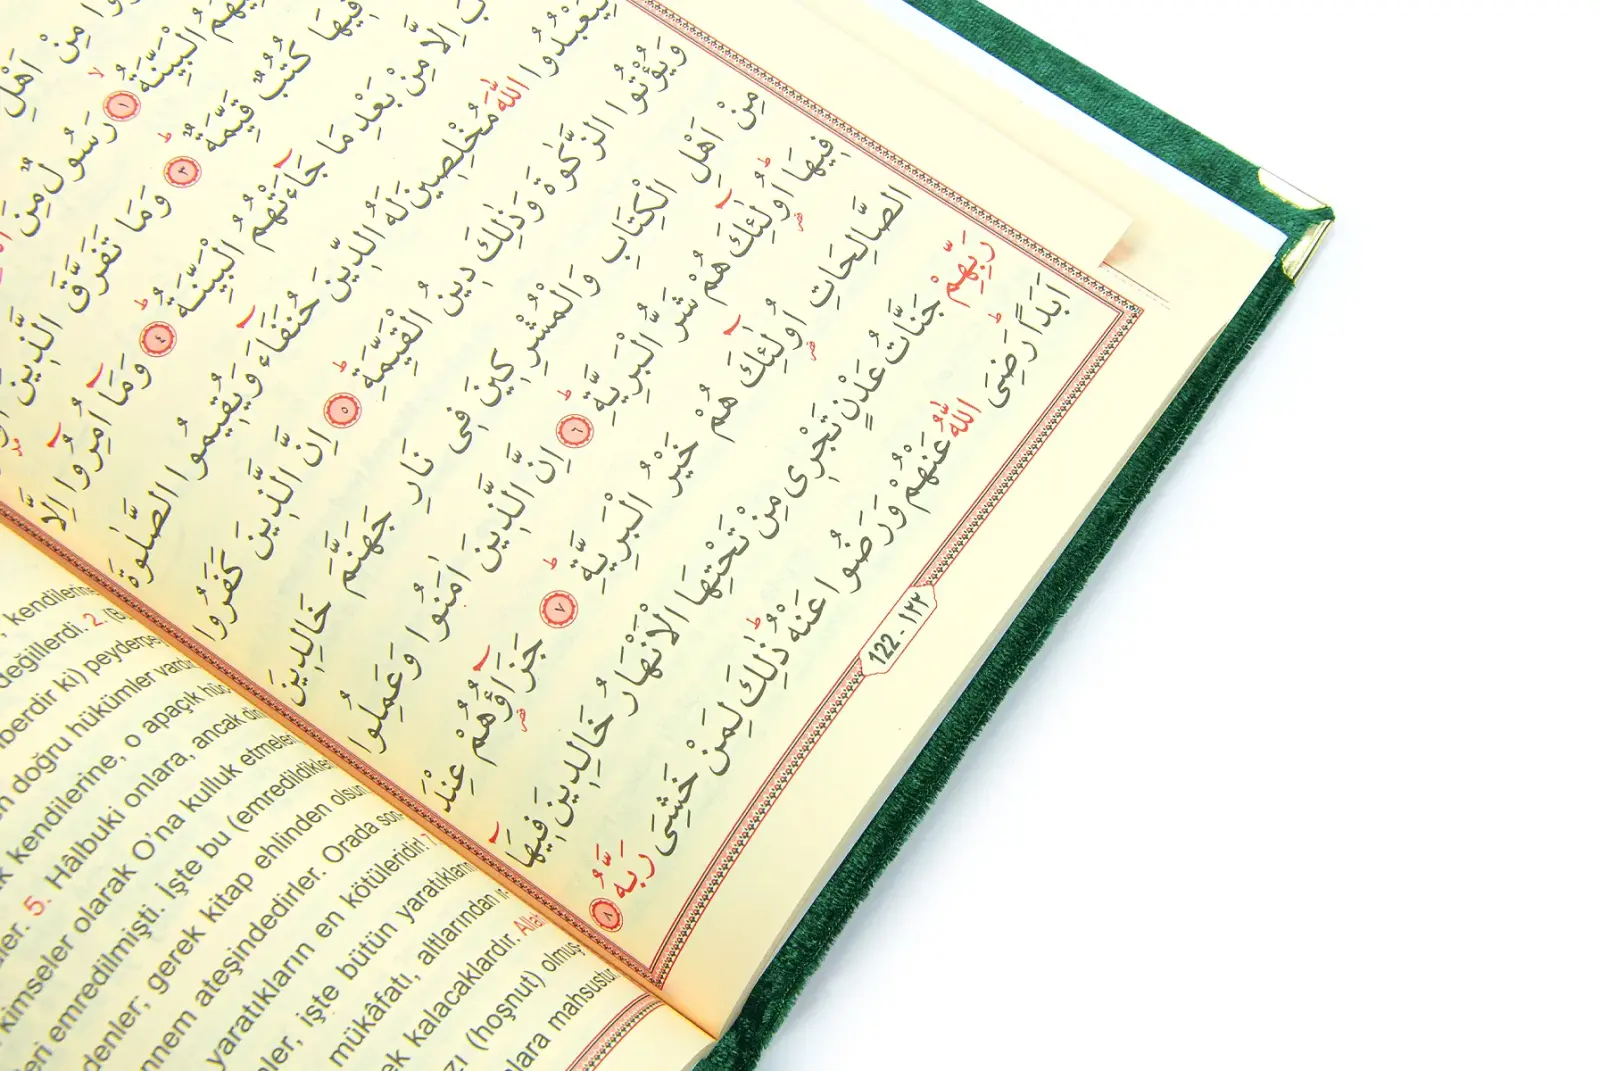 مِنْ اَهْلِ
الْبَيِّنَةُ ۙ ١ رَسُولٌ مِنَ
فِيهَا كُتُبٌ قَيِّمَةٌ ۜ ٣ وَمَا تَفَرَّقَ الَّذِينَ
اِلَّا مِنْ بَعْدِ مَا جَٓاءَتْهُمُ الْبَيِّنَةُ ٤ وَمَٓا اُمِرُٓوا اِلَّا
لِيَعْبُدُوا اللّٰهَ مُخْلِصِينَ لَهُ الدِّينَ حُنَفَٓاءَ وَيُقِيمُوا الصَّلٰوةَ
وَيُؤْتُوا الزَّكٰوةَ وَذٰلِكَ دِينُ الْقَيِّمَةِ ٥ اِنَّ الَّذِينَ كَفَرُوا
مِنْ اَهْلِ الْكِتَابِ وَالْمُشْرِكِينَ فِى نَارِ جَهَنَّمَ خَالِدِينَ
فِيهَا اُولٰٓئِكَ هُمْ شَرُّ الْبَرِيَّةِ ٦ اِنَّ الَّذِينَ اٰمَنُوا وَعَمِلُوا
الصَّالِحَاتِ اُولٰٓئِكَ هُمْ خَيْرُ الْبَرِيَّةِ ٧ جَزَٓاؤُهُمْ عِنْدَ
رَبِّهِمْ جَنَّاتُ عَدْنٍ تَجْرِى مِنْ تَحْتِهَا الْاَنْهَارُ خَالِدِينَ فِيهَٓا
اَبَدًا رَضِىَ اللّٰهُ عَنْهُمْ وَرَضُوا عَنْهُ ذٰلِكَ لِمَنْ خَشِىَ رَبَّهُ ٨
122 - ١٢٢
, kendilerine
değillerdi. 2. (B
berdir ki) peyderpey
doğru hükümler vardır
kendilerine, o apaçık
5. Hâlbuki onlara, ancak din
kimseler olarak O'na kulluk etmeleri
emredilmişti. İşte bu (emredildikleri
denler, gerek kitap ehlinden olsun
ateşindedirler. Orada
yaratıkların en kötüleridir! 7
işte bütün yaratıkların
mükâfatı, altlarından
kalacaklardır. Allah
(hoşnut) olmuş
mahsustur.